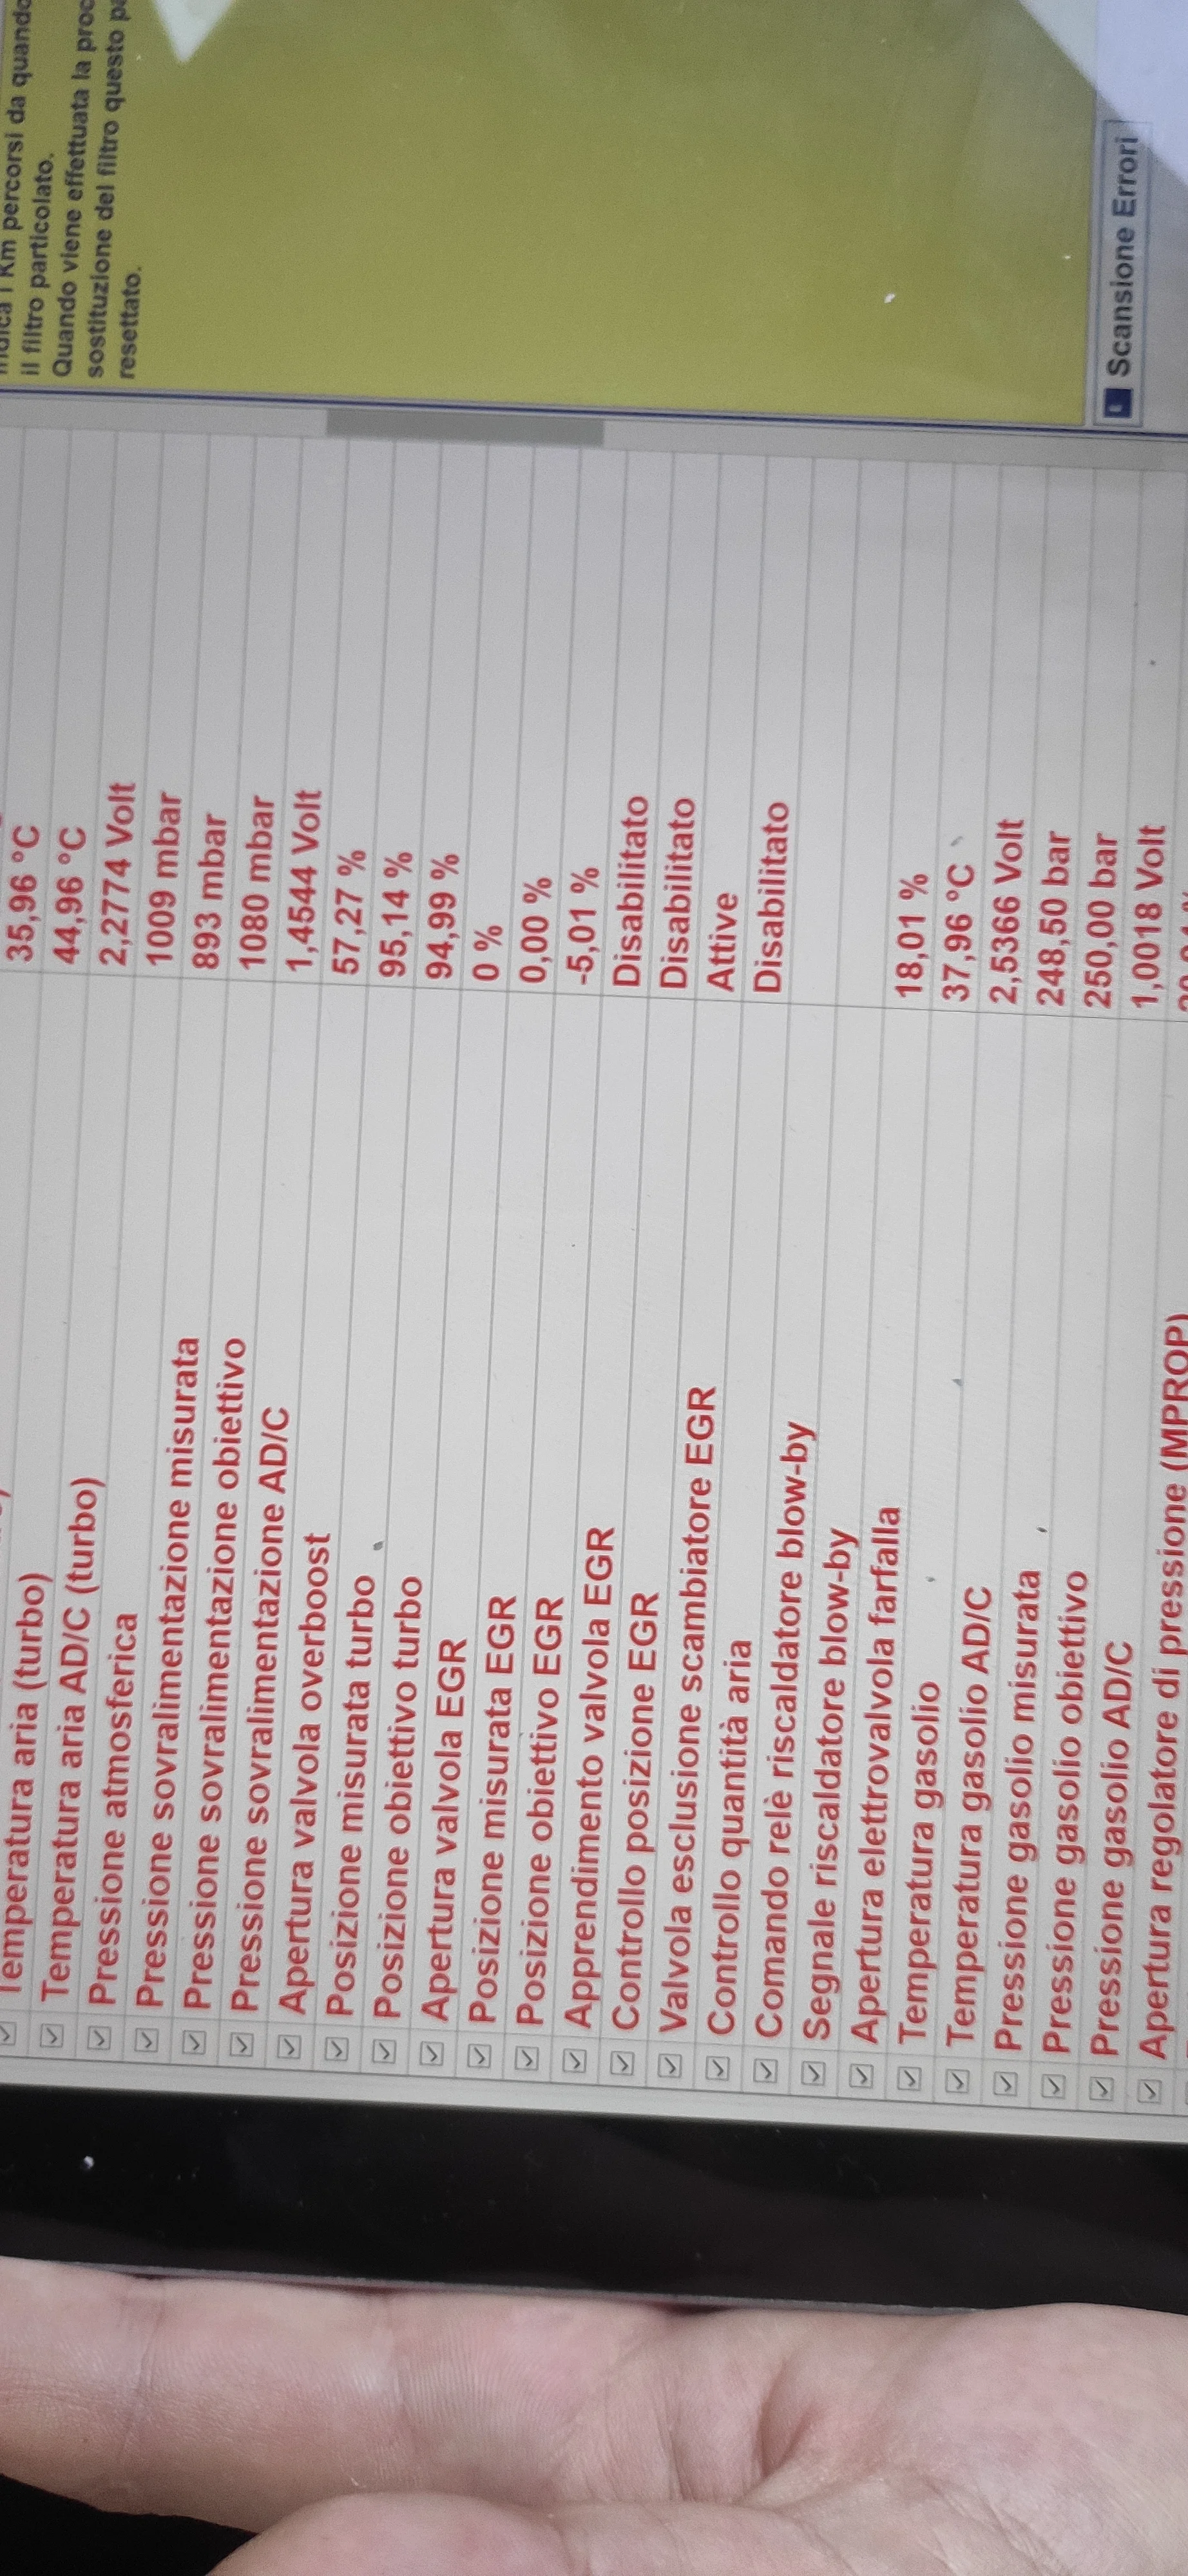 Indica i Km percorsi da quando
il filtro particolato.
Quando viene effettuata la
sostituzione del filtro questo
resettato.
35,96 °C
Temperatura aria (turbo) 44,96 °C
Temperatura aria AD/C (turbo) 2,2774 Volt
Pressione atmosferica 1009 mbar
Pressione sovralimentazione misurata 893 mbar
Pressione sovralimentazione obiettivo 1080 mbar
Pressione sovralimentazione AD/C 1,4544 Volt
Apertura valvola overboost 57,27 %
Posizione misurata turbo 95,14 %
Posizione obiettivo turbo 94,99 %
Apertura valvola EGR 0 %
Posizione misurata EGR 0,00 %
Posizione obiettivo EGR -5,01 %
Apprendimento valvola EGR Disabilitato
Controllo posizione EGR Disabilitato
Valvola esclusione scambiatore EGR Attive
Controllo quantità aria Disabilitato
Comando relè riscaldatore blow-by
Segnale riscaldatore blow-by
Apertura elettrovalvola farfalla 18,01 %
Temperatura gasolio 37,96 °C
Temperatura gasolio AD/C 2,5366 Volt
Pressione gasolio misurata 248,50 bar
Pressione gasolio obiettivo 250,00 bar
Pressione gasolio AD/C 1,0018 Volt
Apertura regolatore di pressione (MPROP)
Scansione Errori